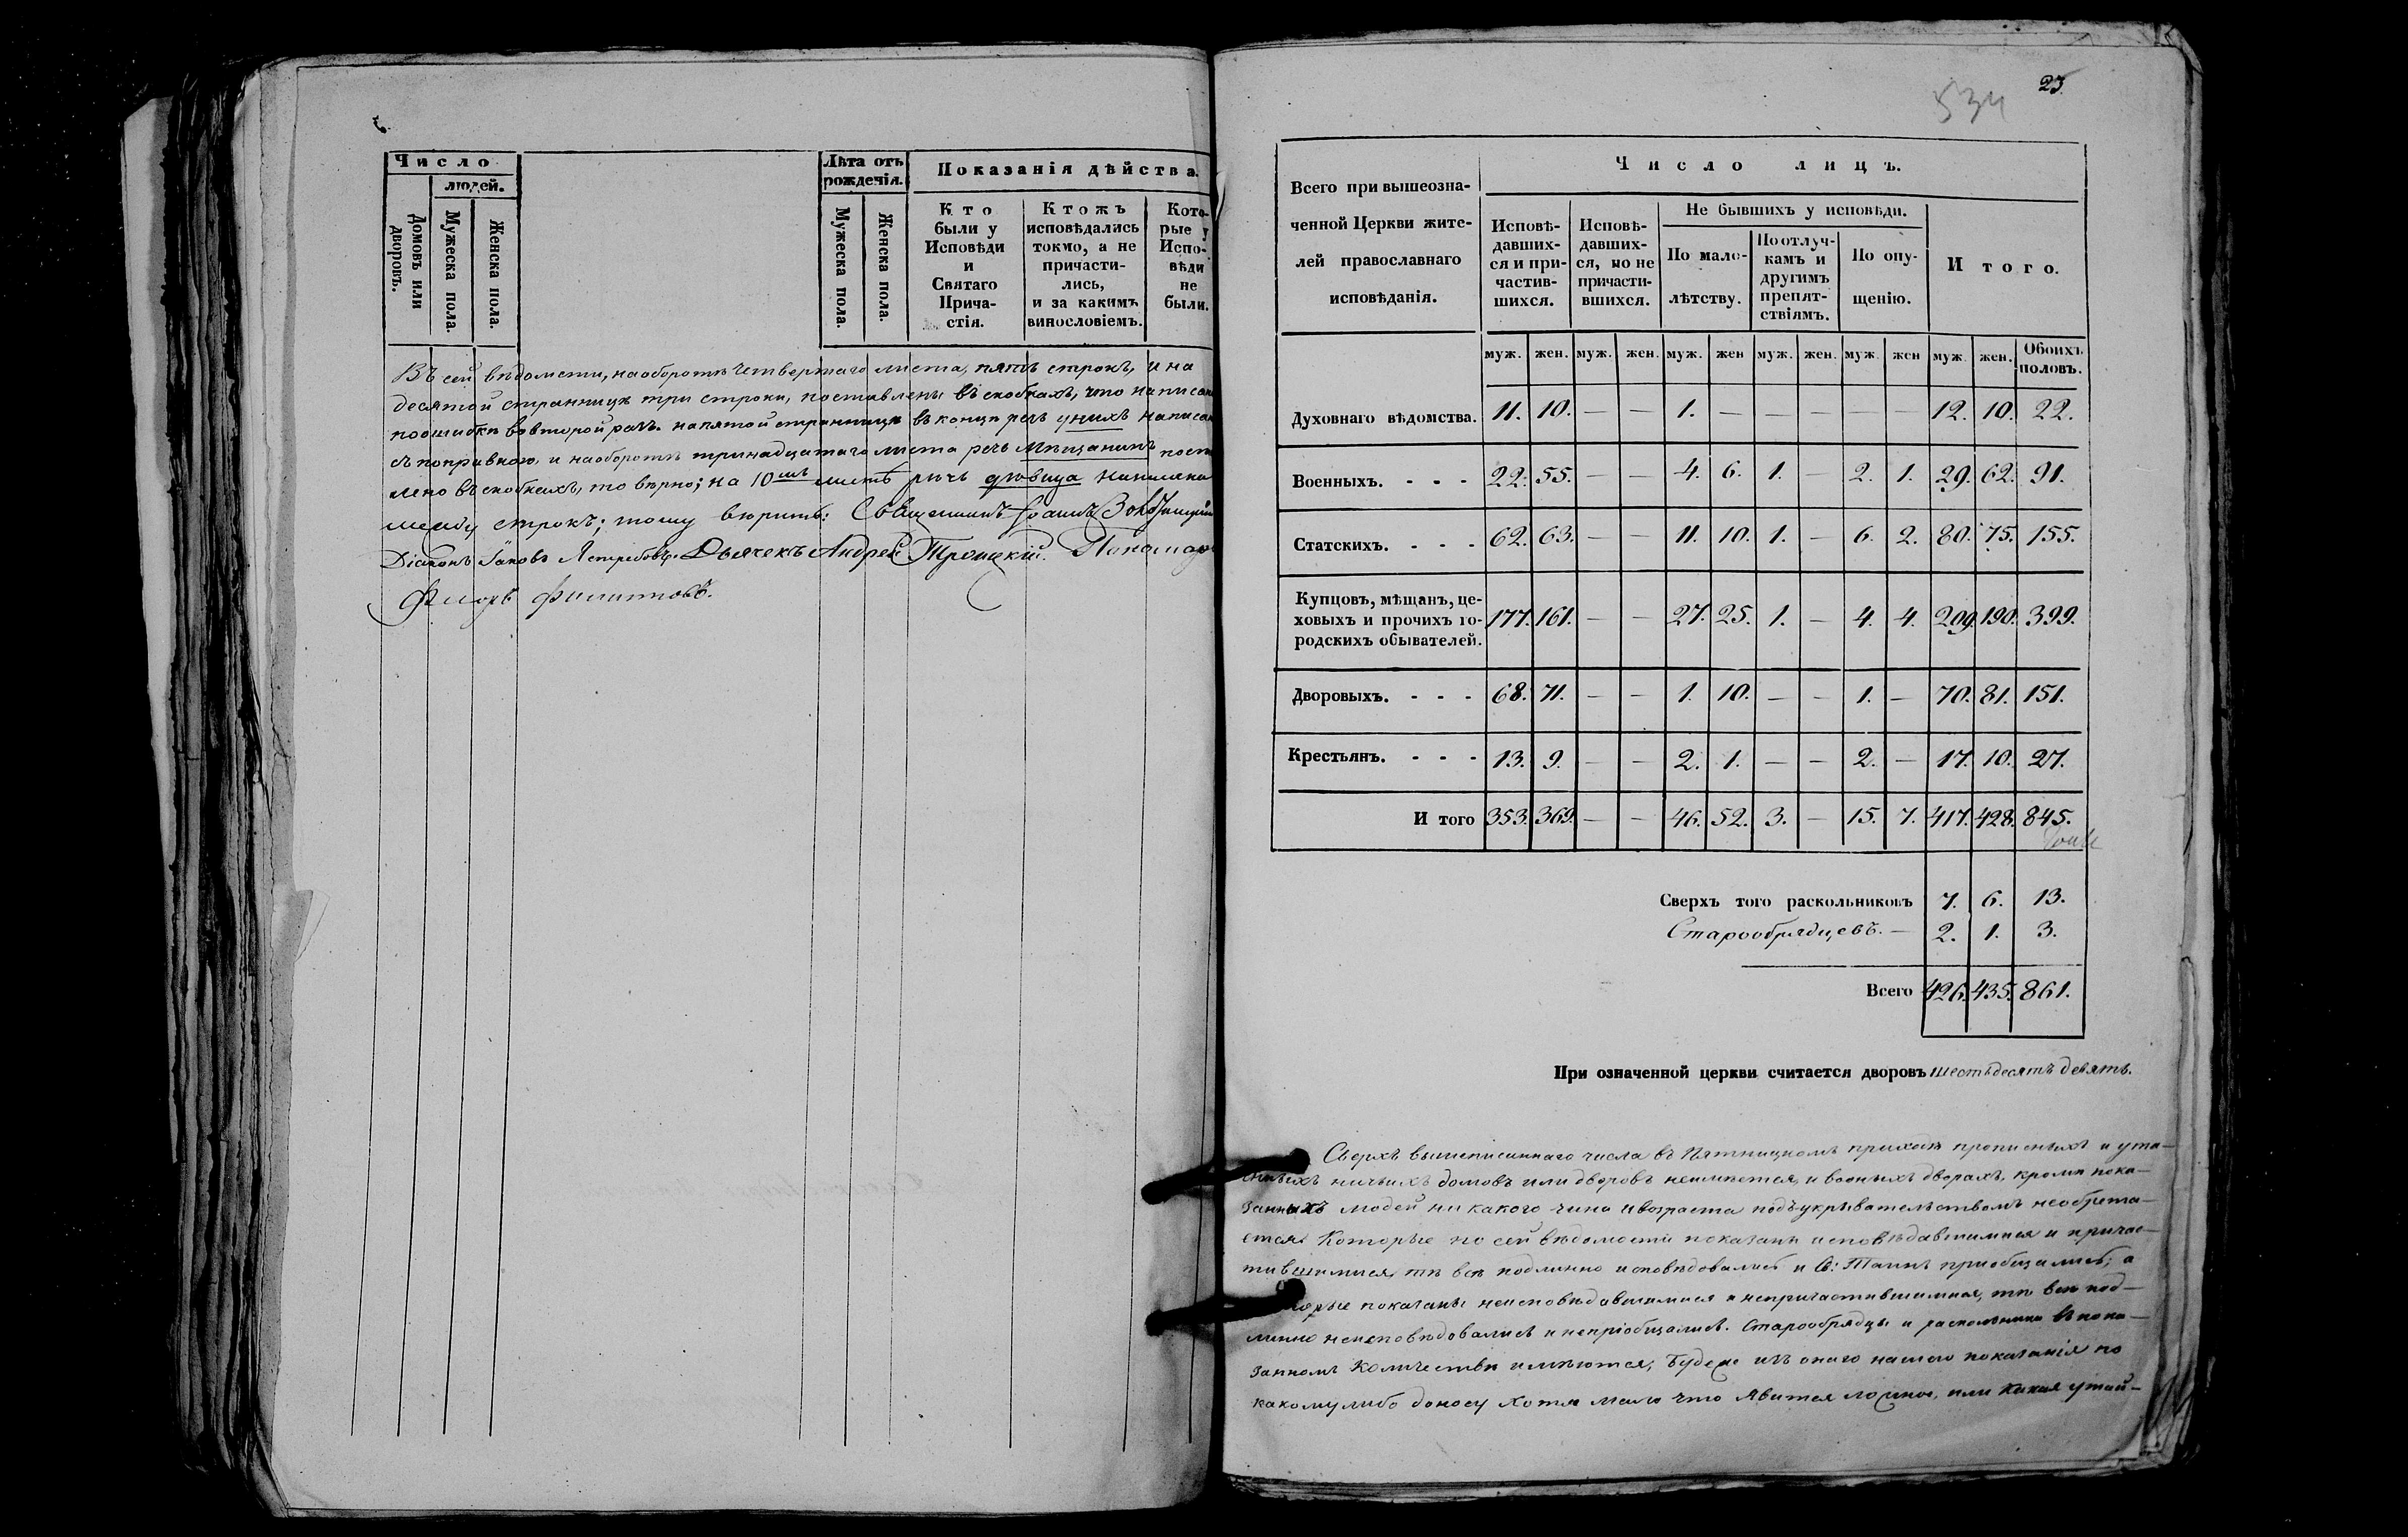 Число
людей.
Домовъ или дворовъ.
Мужеска пола.
Женска пола.
Лѣта отъ
рожденія.
Мужеска пола.
Женска пола.
Показанія дѣйства.
Кто
были у
Исповѣди
и
Святаго
Прича-
стія.
Ктожъ
исповѣдались
токмо, а не
причасти-
лись,
и за какимъ
винословіемъ.
Кото-
рые у
Испо-
вѣди
не
были.
Въ сей вѣдомости, на оборотѣ четвертаго листа, пять строкъ, и на
десятой странницѣ три строки, поставлены въ скобкахъ, что написаны
по ошибкѣ во второй разъ. на пятой странницѣ въ концѣ речь у нихъ написана
съ поправкою, и на оборотѣ тринадцатаго листа речь Мѣщанинъ
лено въ скобкахъ, то вѣрно; на 10мъ листѣ рѣчь вдовица написана
между строкъ; тому вѣрить: Священникъ Іоаннъ
Діаконъ Іаковъ Ястребовъ. Дьячекъ Андрей Троицкій. Пономарь
Филиповъ.
534
23.
Всего при вышеозна-
ченной Церкви жите-
лей православнаго
исповѣданія.
Число лицъ.
Исповѣ-
давших-
ся и при-
частив-
шихся.
Исповѣ-
давших-
ся, но не
причасти-
вшихся.
Не бывшихъ у исповѣди.
По мало-
лѣтству.
По отлуч-
камъ и
другимъ
препят-
ствіямъ.
По опу-
щенію.
И того.
муж. жен. муж. жен. муж. жен муж. жен. муж. жен муж. жен. Обоихъ половъ.
Духовнаго вѣдомства. 11. 10. — — 1. — — — 12. 10. 22.
Военныхъ. - - - 22. 55. — — 4. 6. 1. — 2. 1. 29. 62. 91.
Статскихъ. - - - 62. 63. — — 11. 10. 1. — 6. 2. 80. 75. 155.
Купцовъ, мѣщанъ, це-
ховыхъ и прочихъ го-
родскихъ обывателей. 177. 161. — — 27. 25. 1. — 4. 4. 209. 190. 399.
Дворовыхъ. - - - 68. 71. — — 1. 10. — — 1. — 70. 81. 151.
Крестьянъ. - - - 13. 9. — — 2. 1. — — 2. — 17. 10. 27.
И того 353. 369. — — 46. 52. 3. — 15. 7. 417. 428. 845.
Сверхъ того раскольниковъ 7. 6. 13.
Старообрядцевъ. — 2. 1. 3.
Всего 426. 435. 861.
При означенной церкви считается дворовъ шестьдесятъ девять.
Сверхъ вышеписаннаго числа въ Пятницкомъ приходѣ прописныхъ и ута-
енныхъ ничьихъ домовъ или дворовъ неимѣется, и в оныхъ дворахъ, кромѣ пока-
занныхъ людей ни какого чина и возраста подъ укрывательствомъ необрета-
ется. Которые по сей вѣдомости показаны исповѣдавшимися и причас-
тившимися, тѣ всѣ подлинно исповѣдовались и Св: Таинъ пріобщались; а
которые показаны неисповѣдавшимися и непричастившимися, тѣ всѣ под-
линно неисповѣдовались и непріобщались. Старообрядцы и раскольники въ пока-
занномъ количествѣ имѣются; Буде же изъ онаго нашего показанія по
какому либо доносу хотя мало что явится ложно, или какая утай-